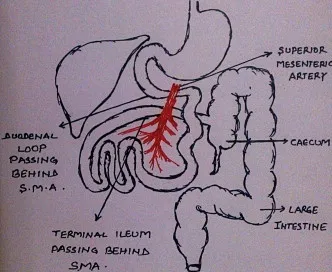 SUPERIOR
MESENTERIC
ARTERY
DUODENAL
LOOP
PASSING
BEHIND
S.M.A.
CAECUM
LARGE
INTESTINE
TERMINAL ILEUM
PASSING BEHIND
SMA.